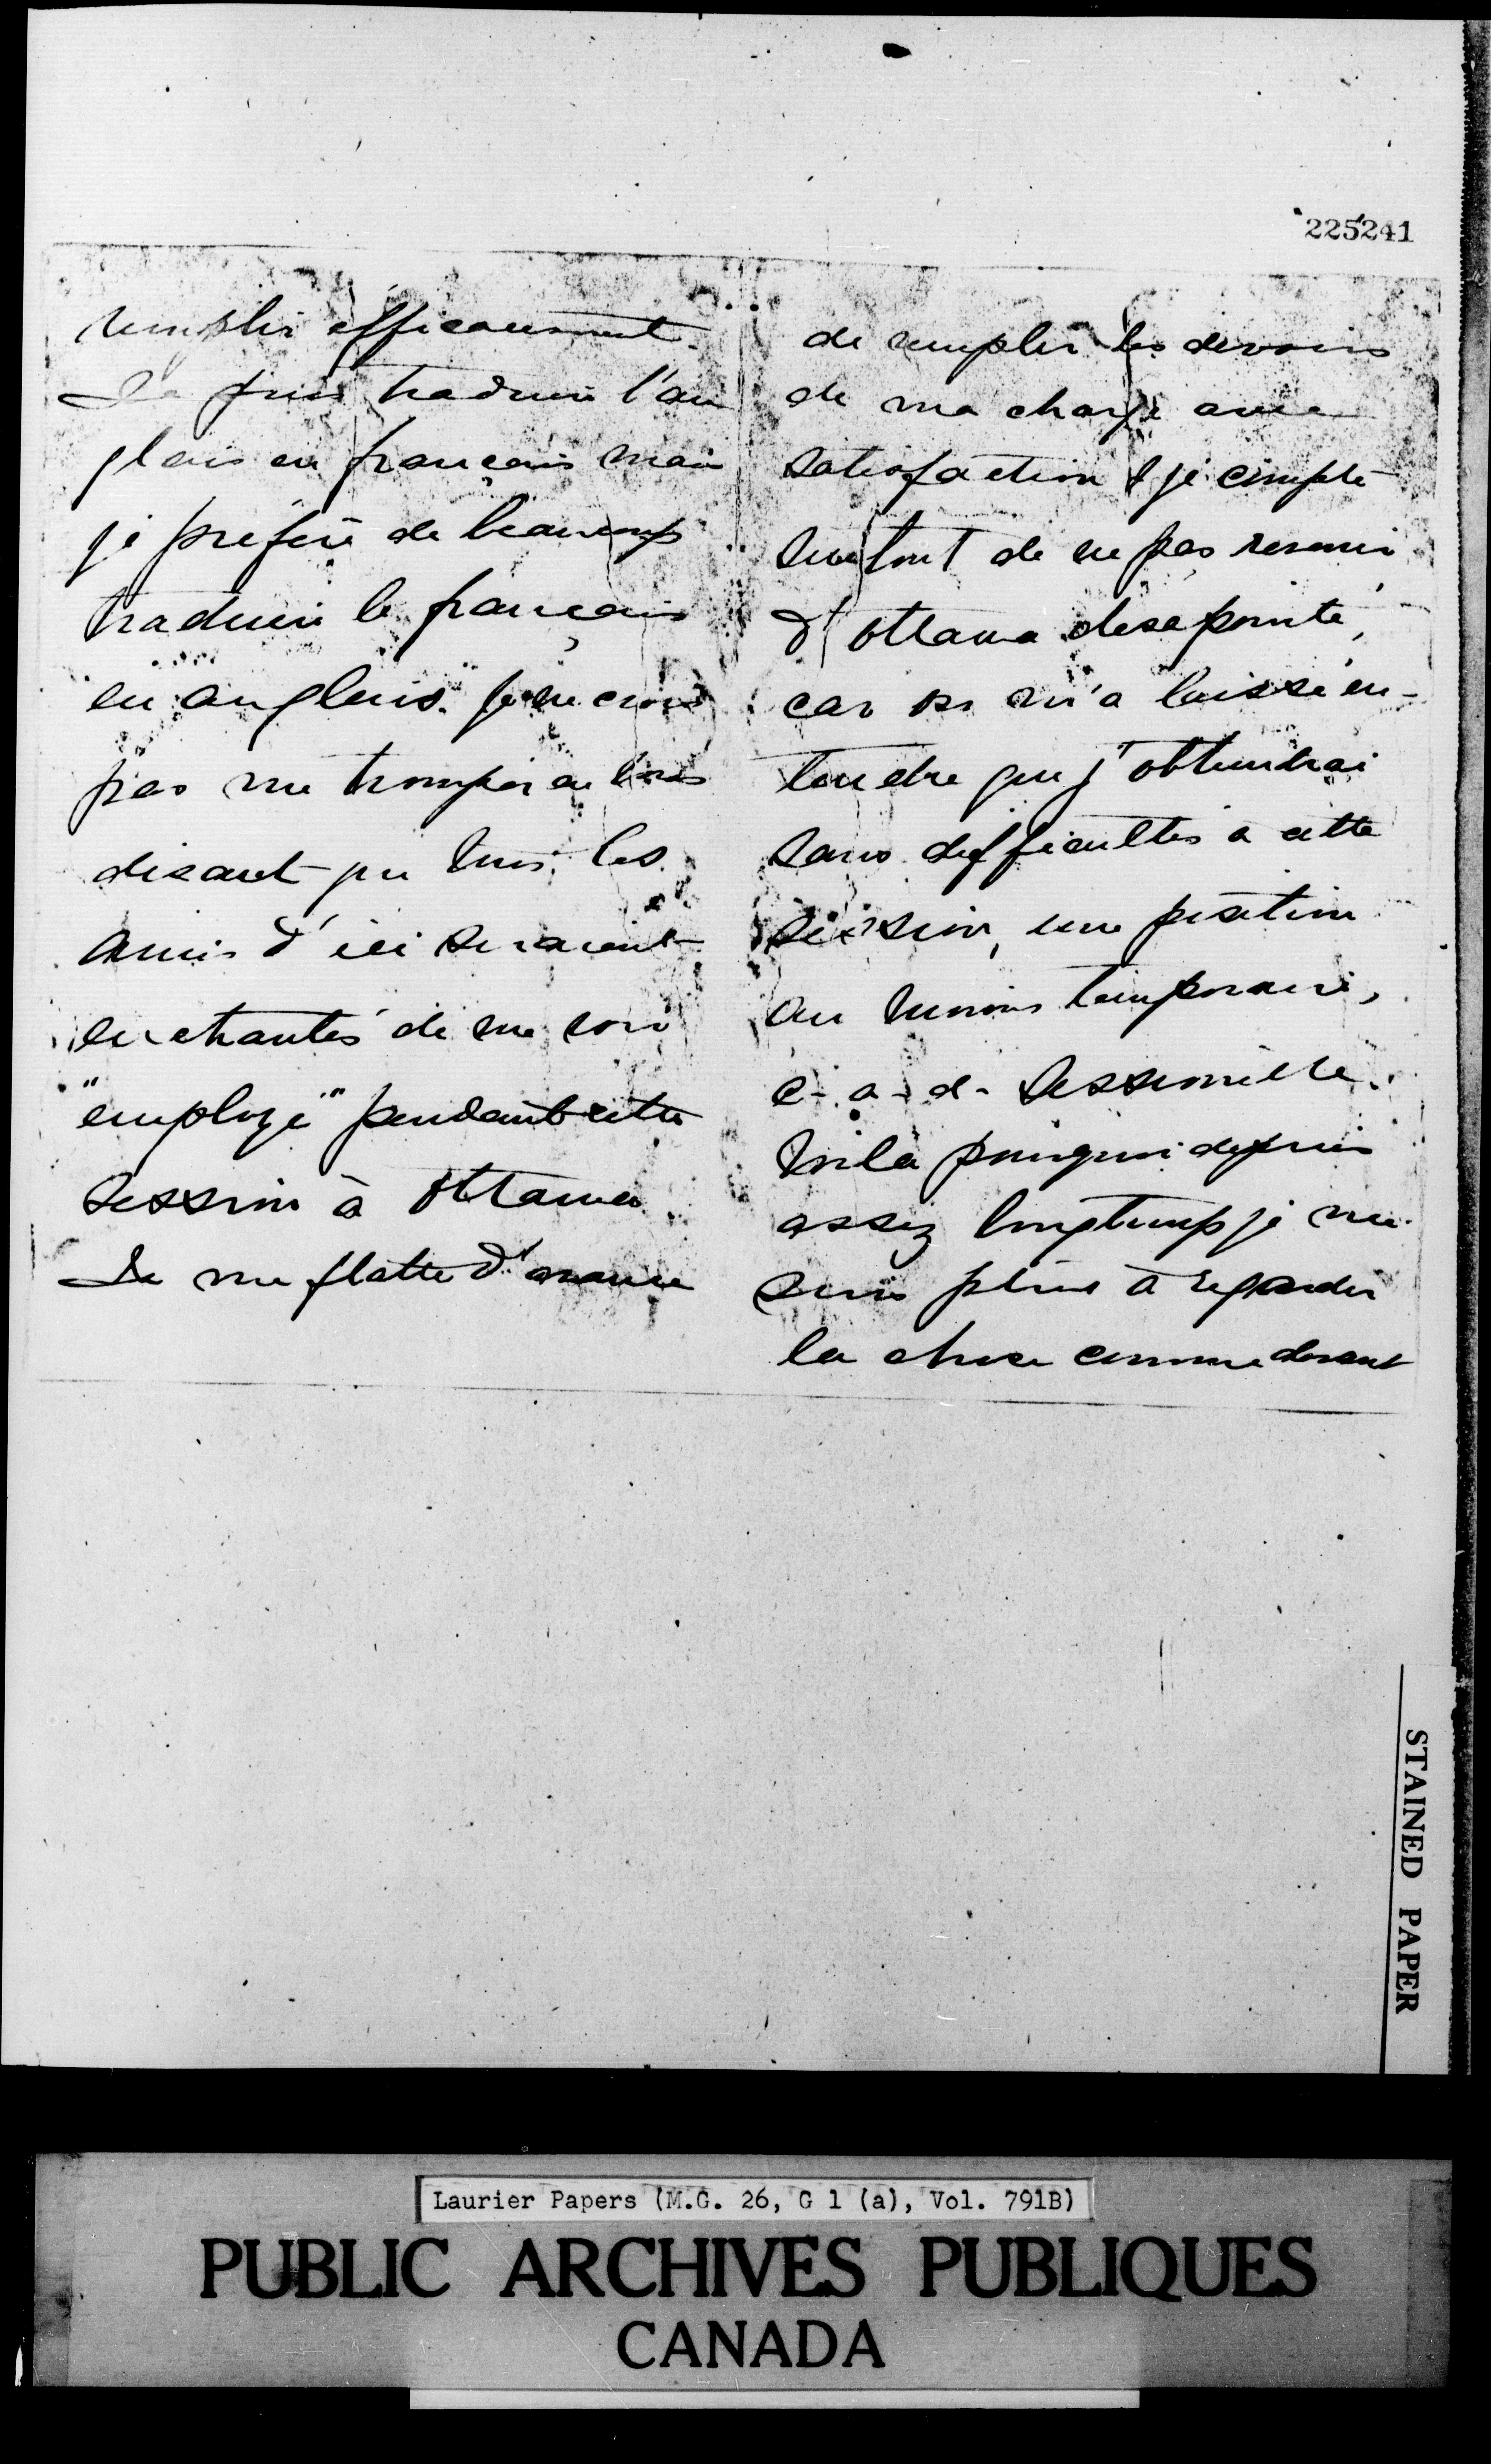 225241
remplir efficacement.
Je puis traduire l'an
glais en français mais
je préfère de beaucoup
traduire le français
en anglais. Je ne crois
pas me tromper en vous
disant que tous les
amis d'ici seraient
enchantés de me voir
"employé" pendant cette
session à Ottawa
Je me flatte d'avance
de remplir les devoirs
de ma charge avec
satisfaction & je compte
surtout de ne pas revenir
d'Ottawa désapointé,
car on m'a laissé en-
tendre que j'obtiendrai
sans difficultés à cette
session, une position
au moins temporaire,
c-à-d- sessionelle.
Voilà pourquoi depuis
assez longtemps je me
suis plû à regarder
la chose comme devant
STAINED PAPER
Laurier Papers (M.G. 26, G 1 (a), Vol. 791B)
PUBLIC ARCHIVES PUBLIQUES
CANADA